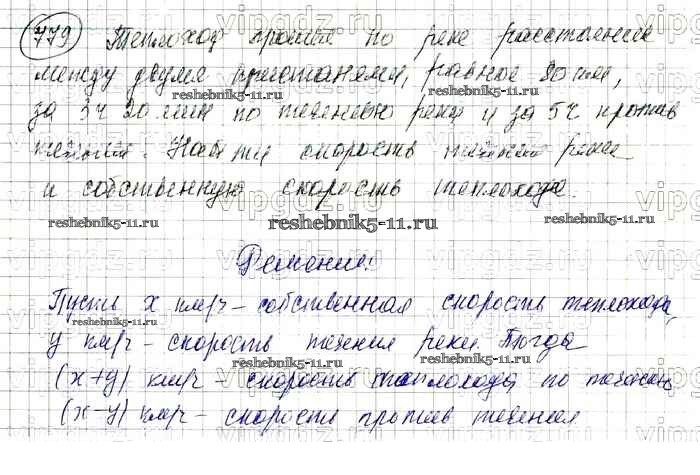 779 Теплоход прошел по реке расстояние
между двумя пристанями, равное 80 км,
за 3ч 20 мин по течению реки и за 5ч против
течения. Найти скорость течения реки
и собственную скорость теплохода.
Решение:
Пусть x км/ч - собственная скорость теплохода,
y км/ч - скорость течения реки. Тогда
(x+y) км/ч - скорость теплохода по течен
(x-y) км/ч - скорость против течения.
reshebnik5-11.ru
reshebnik5-11.ru
reshebnik5-11.ru
reshebnik5-11.ru
reshebnik5-11.ru
reshebnik5-11.ru
reshebnik5-11.ru
reshebnik5-11.ru
reshebnik5-11.ru
vipgdz.ru